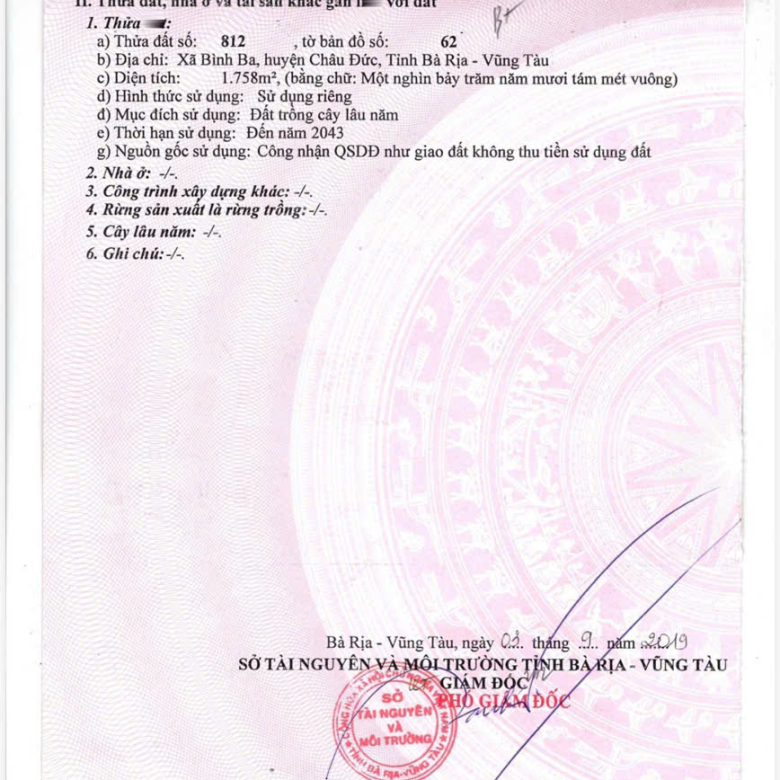 II. Thửa đất, nhà ở và tài sản khác gắn với đất
1. Thửa
a) Thửa đất số: 812 , tờ bản đồ số: 62
b) Địa chỉ: Xã Bình Ba, huyện Châu Đức, Tỉnh Bà Rịa - Vũng Tàu
c) Diện tích: 1.758m², (bằng chữ: Một nghìn bảy trăm năm mươi tám mét vuông)
d) Hình thức sử dụng: Sử dụng riêng
đ) Mục đích sử dụng: Đất trồng cây lâu năm
e) Thời hạn sử dụng: Đến năm 2043
g) Nguồn gốc sử dụng: Công nhận QSDĐ như giao đất không thu tiền sử dụng đất
2. Nhà ở: -/-.
3. Công trình xây dựng khác: -/-.
4. Rừng sản xuất là rừng trồng:-/-.
5. Cây lâu năm: -/-.
6. Ghi chú:-/-.
Bà Rịa - Vũng Tàu, ngày 03 tháng 9 năm 2019
SỞ TÀI NGUYÊN VÀ MÔI TRƯỜNG TỈNH BÀ RỊA - VŨNG TÀU
GIÁM ĐỐC
PHÓ GIÁM ĐỐC
CỘNG HÒA XÃ HỘI CHỦ NGHĨA VIỆT NAM
SỞ
TÀI NGUYÊN
VÀ
MÔI TRƯỜNG
TỈNH BÀ RỊA-VŨNG TÀU